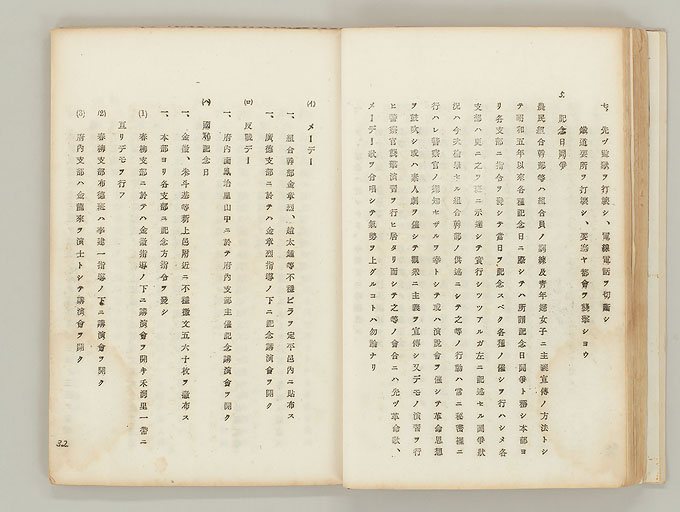 七、先ヅ電線ヲ打壞シ、電線電話ヲ切斷シ
鐵道要所ヲ打壞シ、要塞ヤ都會ヲ襲擊シヨウ
5、記念日鬪爭
農民組合幹部等ハ組合員ノ訓練及靑年婦女子ニ主義宣傳ノ方法トシ
テ昭和五年以來各種記念日ニ際シテハ所謂記念日鬪爭ト稱シ本部ヨ
リ各支部ニ指令ヲ發シテ當日ヲ記念スベク各種ノ催シヲ行ハシメ各
支部ハ更ニ之ヲ班ニ示達シテ實行シツツアルガ左ニ記述セル鬪爭狀
況ハ今次檢擧セル組合幹部ノ供述ニシテ之等ノ行動ハ常ニ秘密裡ニ
行ハレ警察官ノ察知セザルヲ幸トシテ或ハ演說會ヲ催シテ革命思想
ヲ鼓吹シ或ハ素人劇ヲ催シテ觀衆ニ主義ヲ宣傳シ又デモノ演習ヲ行
ヒ警察官襲擊演習ヲ行ヒ居タリ而シテ之等ノ會合ニハ先ヅ革命歌、
メーデー歌ヲ合唱シテ氣勢ヲ上グルコトハ勿論ナリ
(イ) メーデー
一、組合幹部金章烈、趙太鎭等不穩ビラヲ定平邑內ニ貼布ス
一、廣德支部ニ於テハ金章烈指導ノ下ニ記念講演會ヲ開ク
(ロ) 反戰デー
一、府內面風治里山中ニ於テ府內支部主催記念講演會ヲ開ク
(ハ) 國恥記念日
一、金鎭、朱斗基等新上邑附近ニ不穩檄文五六十枚ヲ撒布ス
一、本部ヨリ各支部ニ記念方指令ヲ發シ
(1) 春柳支部ニ於テハ金鎭指導ノ下ニ講演會ヲ開キ禾洞里一帶ニ
亘リデモヲ行フ
(2) 春柳支部布德班ハ李建一指導ノ下ニ講演會ヲ開ク
(3) 府內支部ハ金龍來ヲ演士トシテ講演會ヲ開ク
32